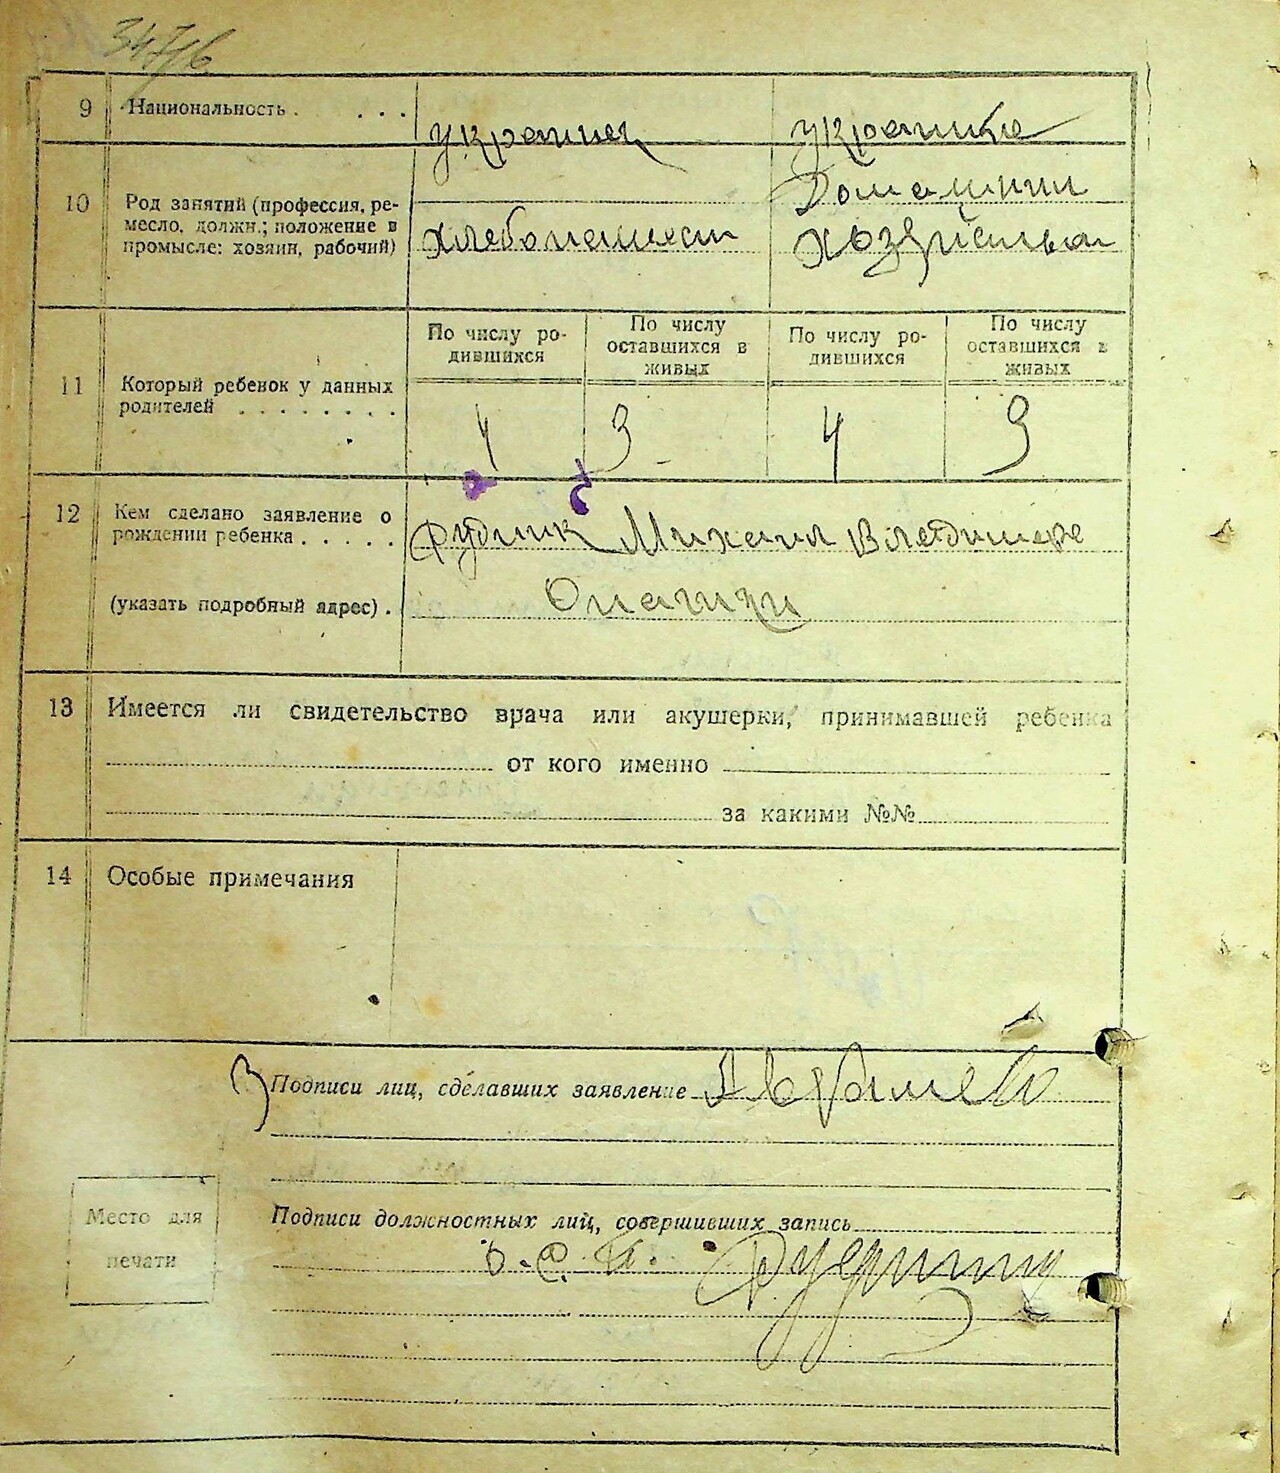 9 Национальность . . . . украинец украинка
10 Род занятий (профессия, ре-
месло, должн.; положение в
промысле: хозяин, рабочий)
хлебопашест
Домашни
хозяйська
11 Который ребенок у данных
родителей . . . . . . . .
По числу ро-
дившихся
По числу
оставшихся в
живых
По числу ро-
дившихся
По числу
оставшихся в
живых
4 3 4 3
12 Кем сделано заявление о
рождении ребенка . . . . .
Рудник Михаил Владимиро
(указать подробный адрес) .
13 Имеется ли свидетельство врача или акушерки, принимавшей ребенка
от кого именно
за какими №№
14 Особые примечания
Подписи лиц, сделавших заявление
Место для
печати
Подписи должностных лиц, совершивших запись